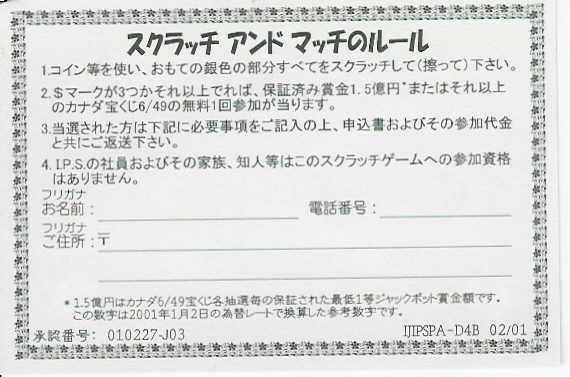 スクラッチ アンド マッチのルール
1.コイン等を使い、おもての銀色の部分すべてをスクラッチして(擦って)下さい。
2.$マークが3つかそれ以上でれば、保証済み賞金1.5億円*またはそれ以上
のカナダ宝くじ6/49の無料1回参加が当ります。
3.当選された方は下記に必要事項をご記入の上、申込書およびその参加代金
と共にご返送下さい。
4.I.P.S.の社員およびその家族、知人等はこのスクラッチゲームへの参加資格
はありません。
フリガナ
お名前: 電話番号:
フリガナ
ご住所:〒
*1.5億円はカナダ6/49宝くじ各抽選毎の保証された最低1等ジャックポット賞金額です。
この数字は2001年1月2日の為替レートで換算した参考数字です。
承認番号: 010227-J03 IJIPSPA-D4B 02/01